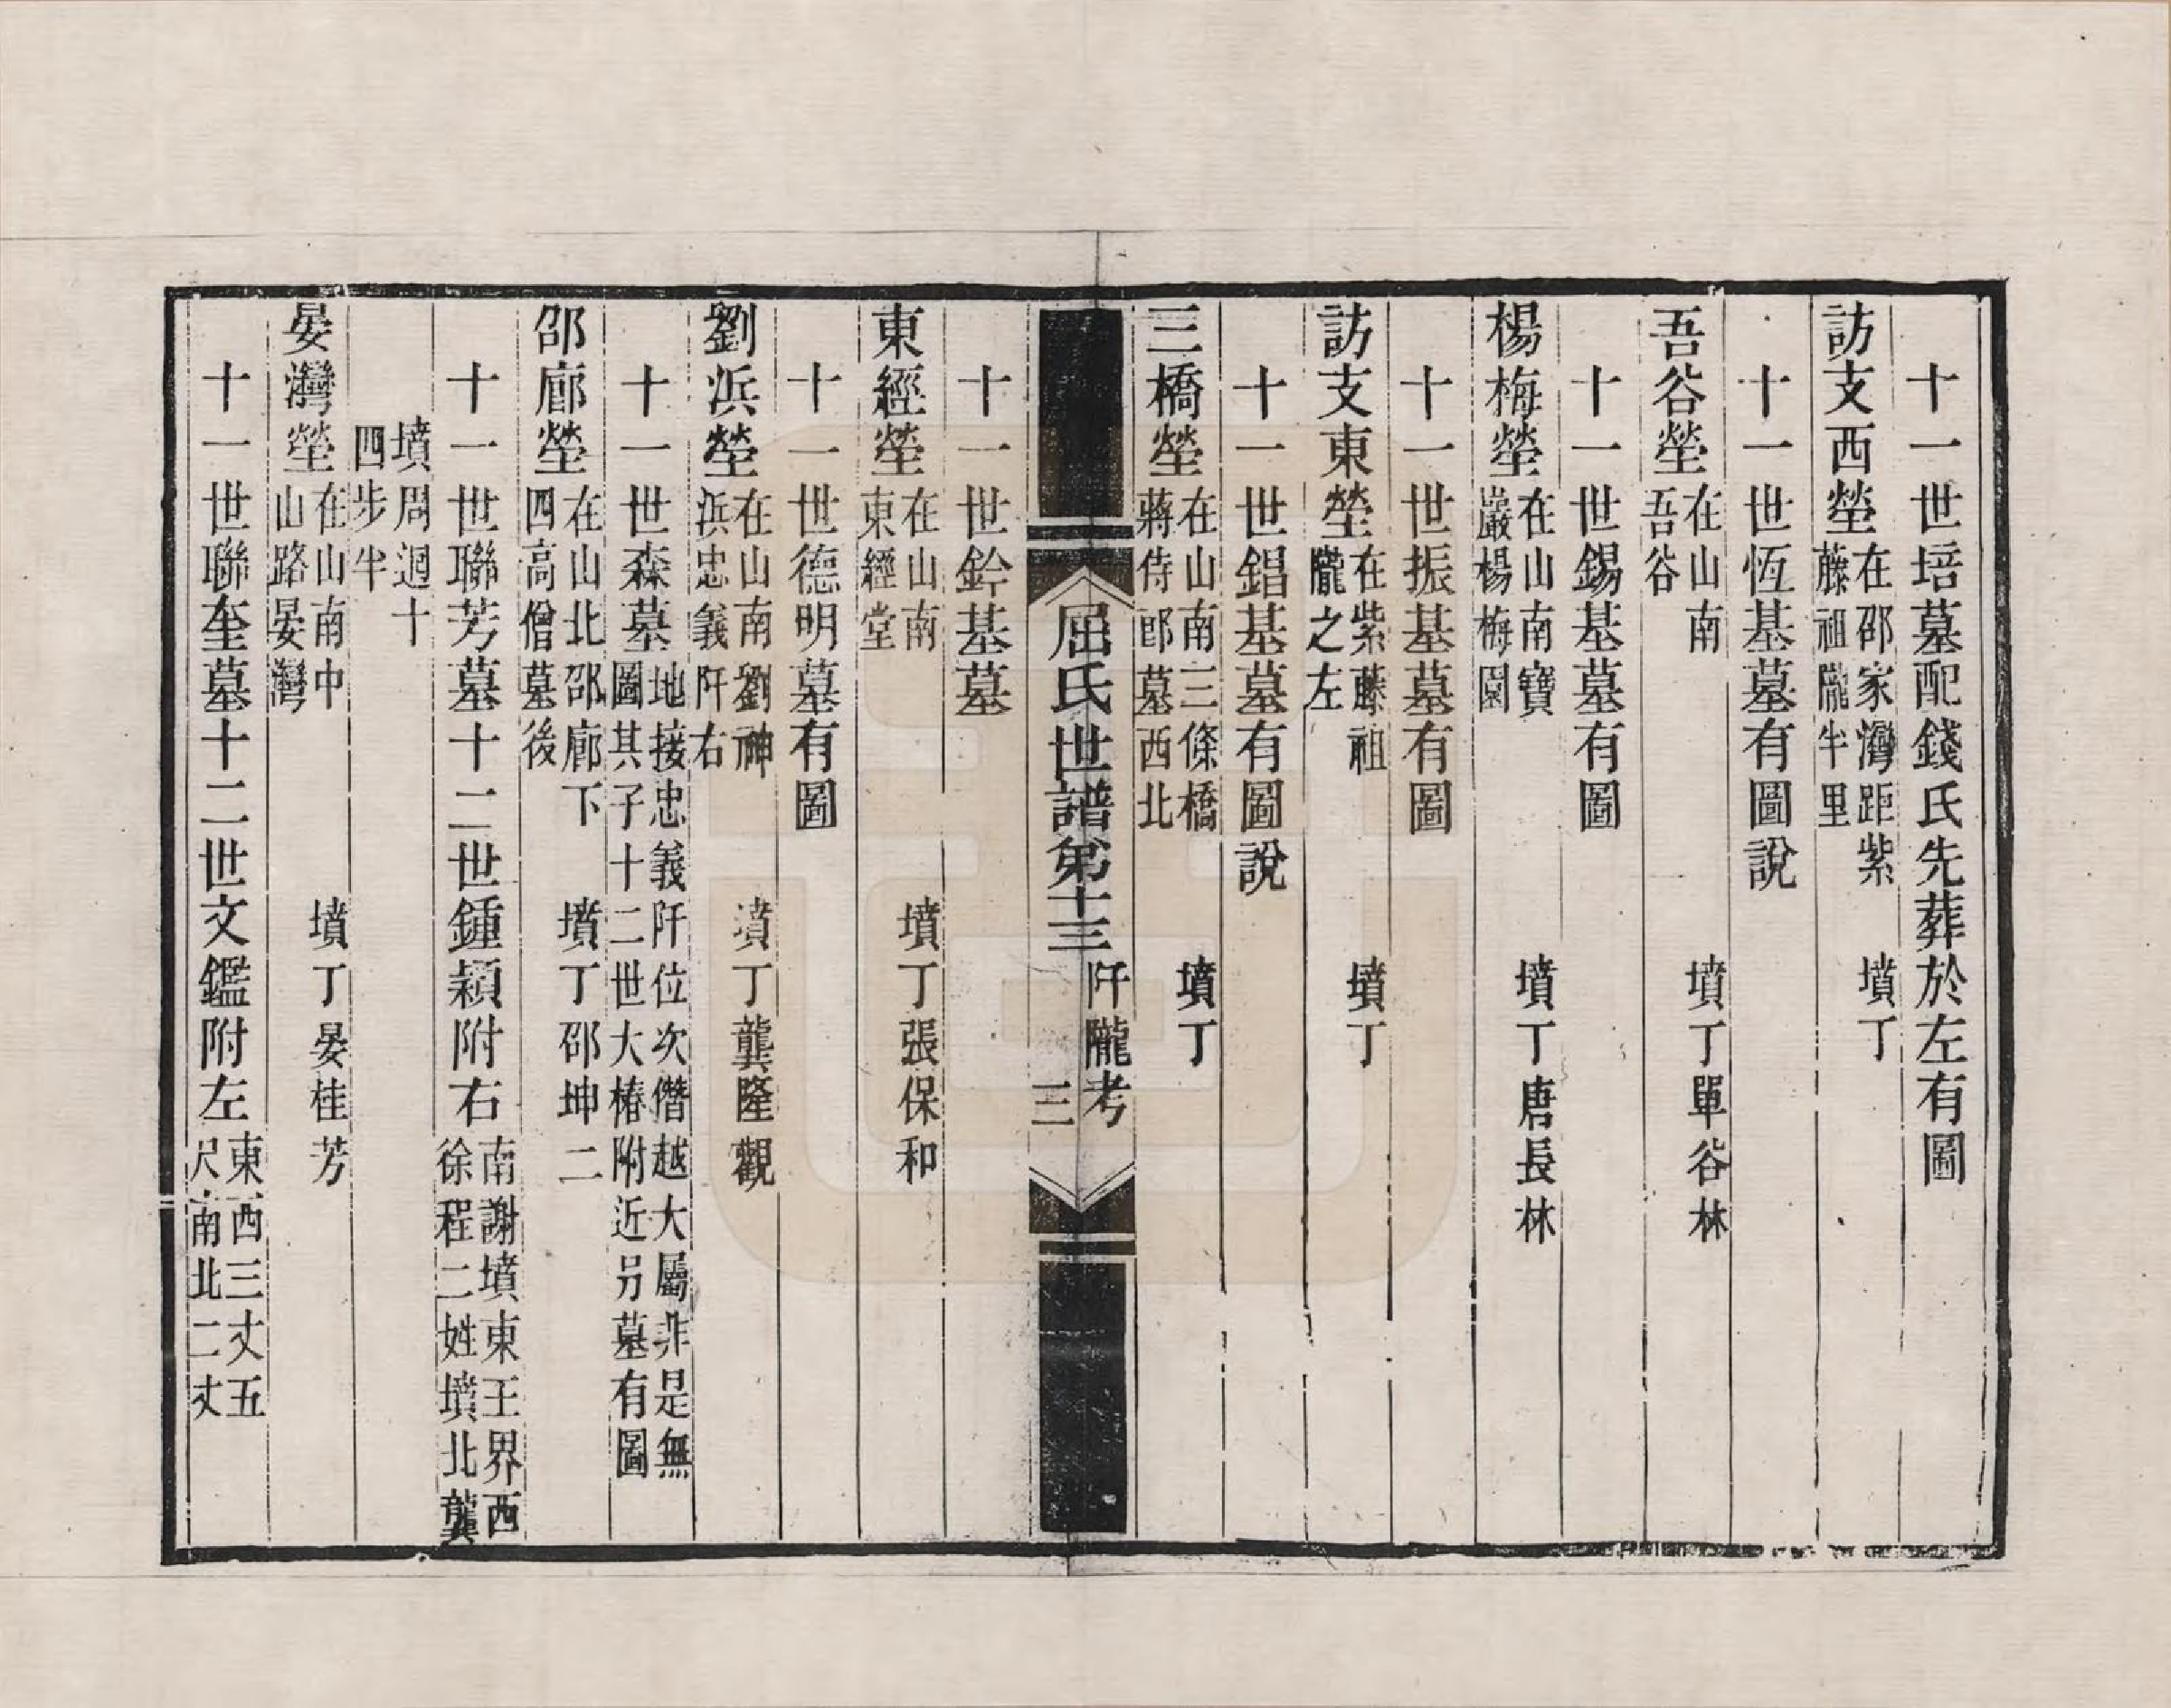 十一世培墓配錢氏先葬於左有圖
訪支西塋在邵家灣距紫藤祖隴半里 墳丁
十一世恆基墓有圖說
吾谷塋在山南吾谷 墳丁單谷林
十一世錫基墓有圖
楊梅塋在山南寶巖楊梅園 墳丁唐長林
十一世振基墓有圖
訪支東塋在紫藤祖隴之左 墳丁
十一世錩基墓有圖說
三橋塋在山南三條橋蔣侍郎墓西北 墳丁
屈氏世譜第十三 阡隴考 三
十一世鈐基墓
東經塋在山南東經堂 墳丁張保和
十一世德明墓有圖
劉浜塋在山南劉神浜忠義阡右 墳丁龔隆觀
十一世森墓地接忠義阡位次僭越大屬非是無圖其子十二世大椿附近另墓有圖
邵廊塋在山北邵廊下四高僧墓後 墳丁邵坤二
十一世聯芳墓十二世鍾穎附右南謝墳東王界西徐程二姓墳北龔
墳周迴十四步半
晏灣塋在山南中山路晏灣 墳丁晏桂芳
十一世聯奎墓十二世文鑑附左東西三丈五尺南北二丈